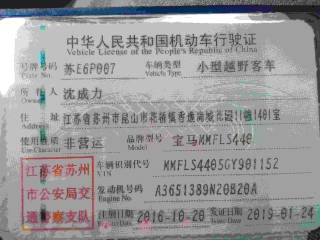 中华人民共和国机动车行驶证
Vehicle License of the People's Republic of China
号牌号码 苏E6P007 车辆类型 小型越野客车
Plate No. Vehicle Type
所有人 沈成力
Owner
住址 江苏省苏州市昆山市花桥镇香逸尚城北园11幢1401室
Address
使用性质 非营运 品牌型号 宝马MMFLS440
Use Character Model
江苏省苏州市公安局交通警察支队
车辆识别代号 MMFLS4405GY901152
VIN
发动机号码 A3651389N20B20A
Engine No.
注册日期 2016-10-20 发证日期 2019-01-24
Register Date Issue Date